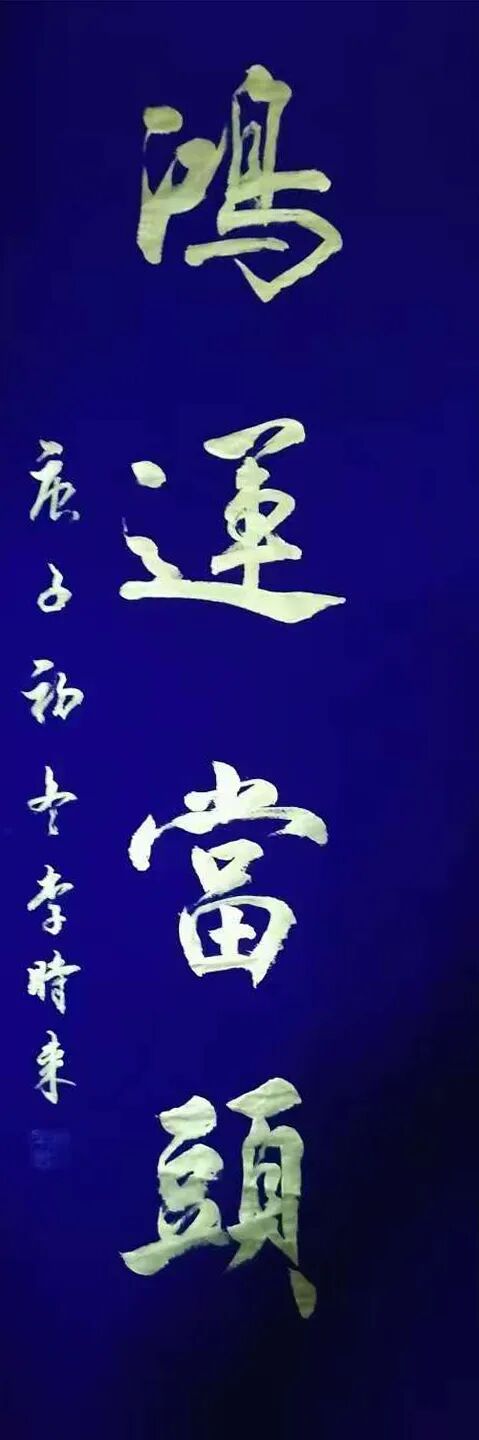 鴻運當頭
庚子初冬李時来